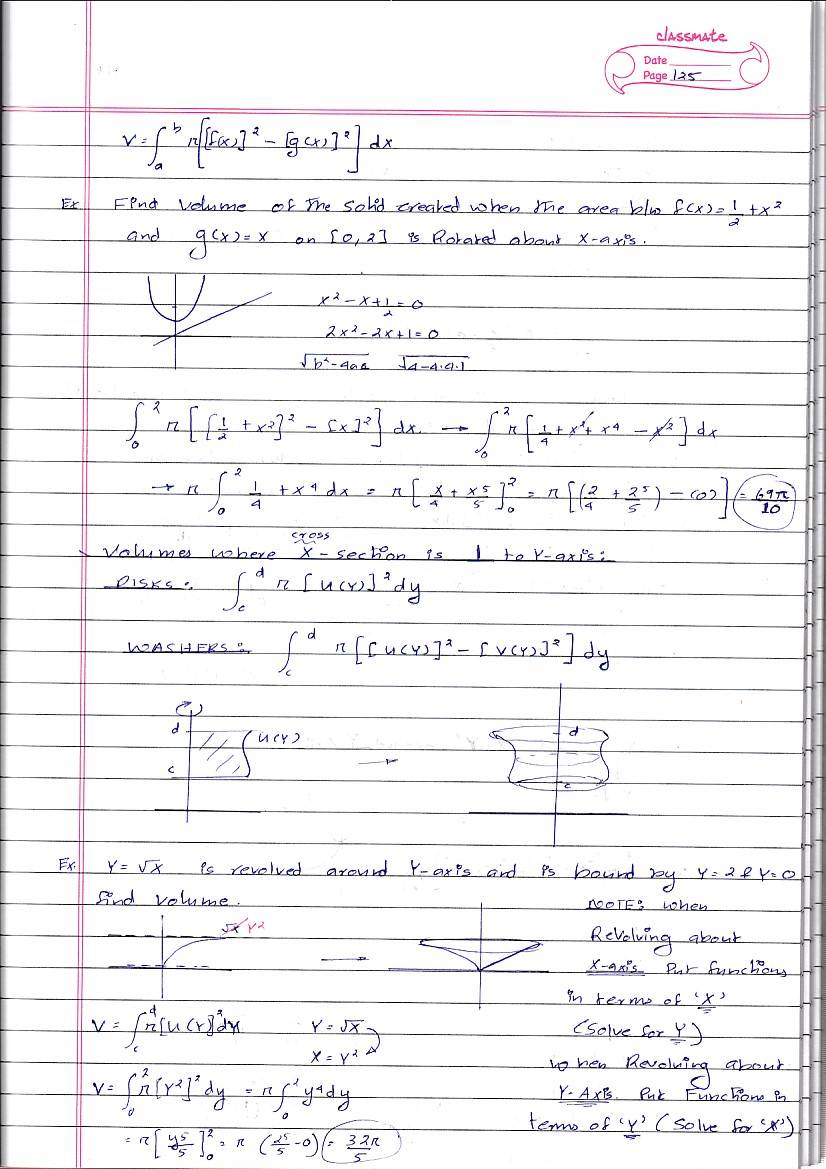 classmate
Date
Page 125
V = ∫_a^b π[[f(x)]² − [g(x)]²] dx
Ex Find Volume of the solid created when the area b/w f(x) = 1/2 + x²
and g(x) = x on [0,2] is Rotated about X-axis.
x² − x + 1/2 = 0
2x² − 2x + 1 = 0
∫_0^2 π[[1/2 + x²]² − [x]²] dx. → ∫_0^2 π[1/4 + x² + x⁴ − x²] dx
→ π ∫_0^2 1/4 + x⁴ dx = π[x/4 + x⁵/5]_0^2 = π[(2/4 + 2⁵/5) − (0)] = 69π/10
cross
Volumes where X-section is ⊥ to Y-axis:
DISKS: ∫_c^d π [u(Y)]² dy
WASHERS: ∫_c^d π[[u(Y)]² − [v(Y)]²] dy
d u(Y) d
c c
Ex. Y = √x is revolved around Y-axis and is bound by Y = 2 & Y = 0
find volume.
√x Y²
NOTE: when
Revolving about
X-axis Put functions
in terms of 'X'
(Solve for Y)
when Revolving about
Y-Axis. Put Functions in
terms of 'Y' (Solve for 'X')
V = ∫_c^d π[u(Y)]² dy Y = √x
X = Y²
V = ∫_0^2 π[Y²]² dy = π∫_0^2 y⁴ dy
= π[y⁵/5]_0^2 = π (2⁵/5 − 0) = 32π/5